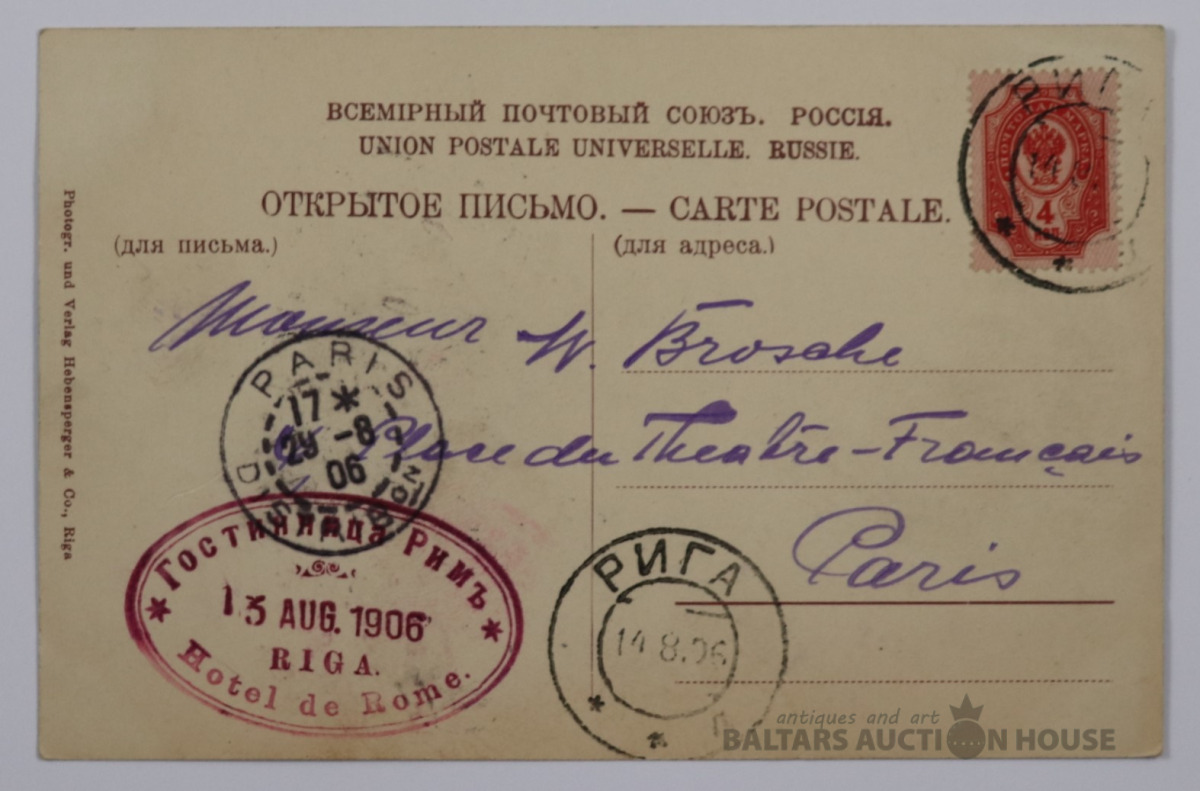 ВСЕМІРНЫЙ ПОЧТОВЫЙ СОЮЗЪ. РОССІЯ.
UNION POSTALE UNIVERSELLE. RUSSIE.
ОТКРЫТОЕ ПИСЬМО. — CARTE POSTALE.
(для письма.)
(для адреса.)
ПОЧТОВАЯ МАРКА
4
КОП.
14.8.
Monsieur W. Brosche
Place du Théatre-Français
Paris
PARIS
17 *
29 -8
06
DISTRIBUTION
Гостинница Римъ
13 AUG. 1906
RIGA.
Hotel de Rome.
РИГА
14.8.06
Photogr. und Verlag Hebensperger & Co., Riga
antiques and art
BALTARS AUCTION HOUSE